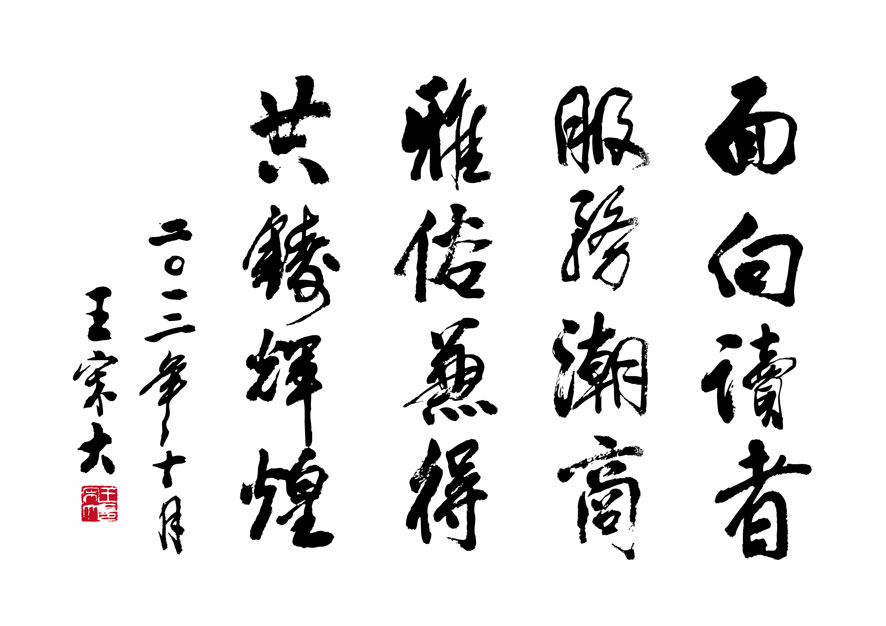 面向讀者
服務潮商
雅俗兼得
共鑄輝煌
二〇一三年十月
王宗大